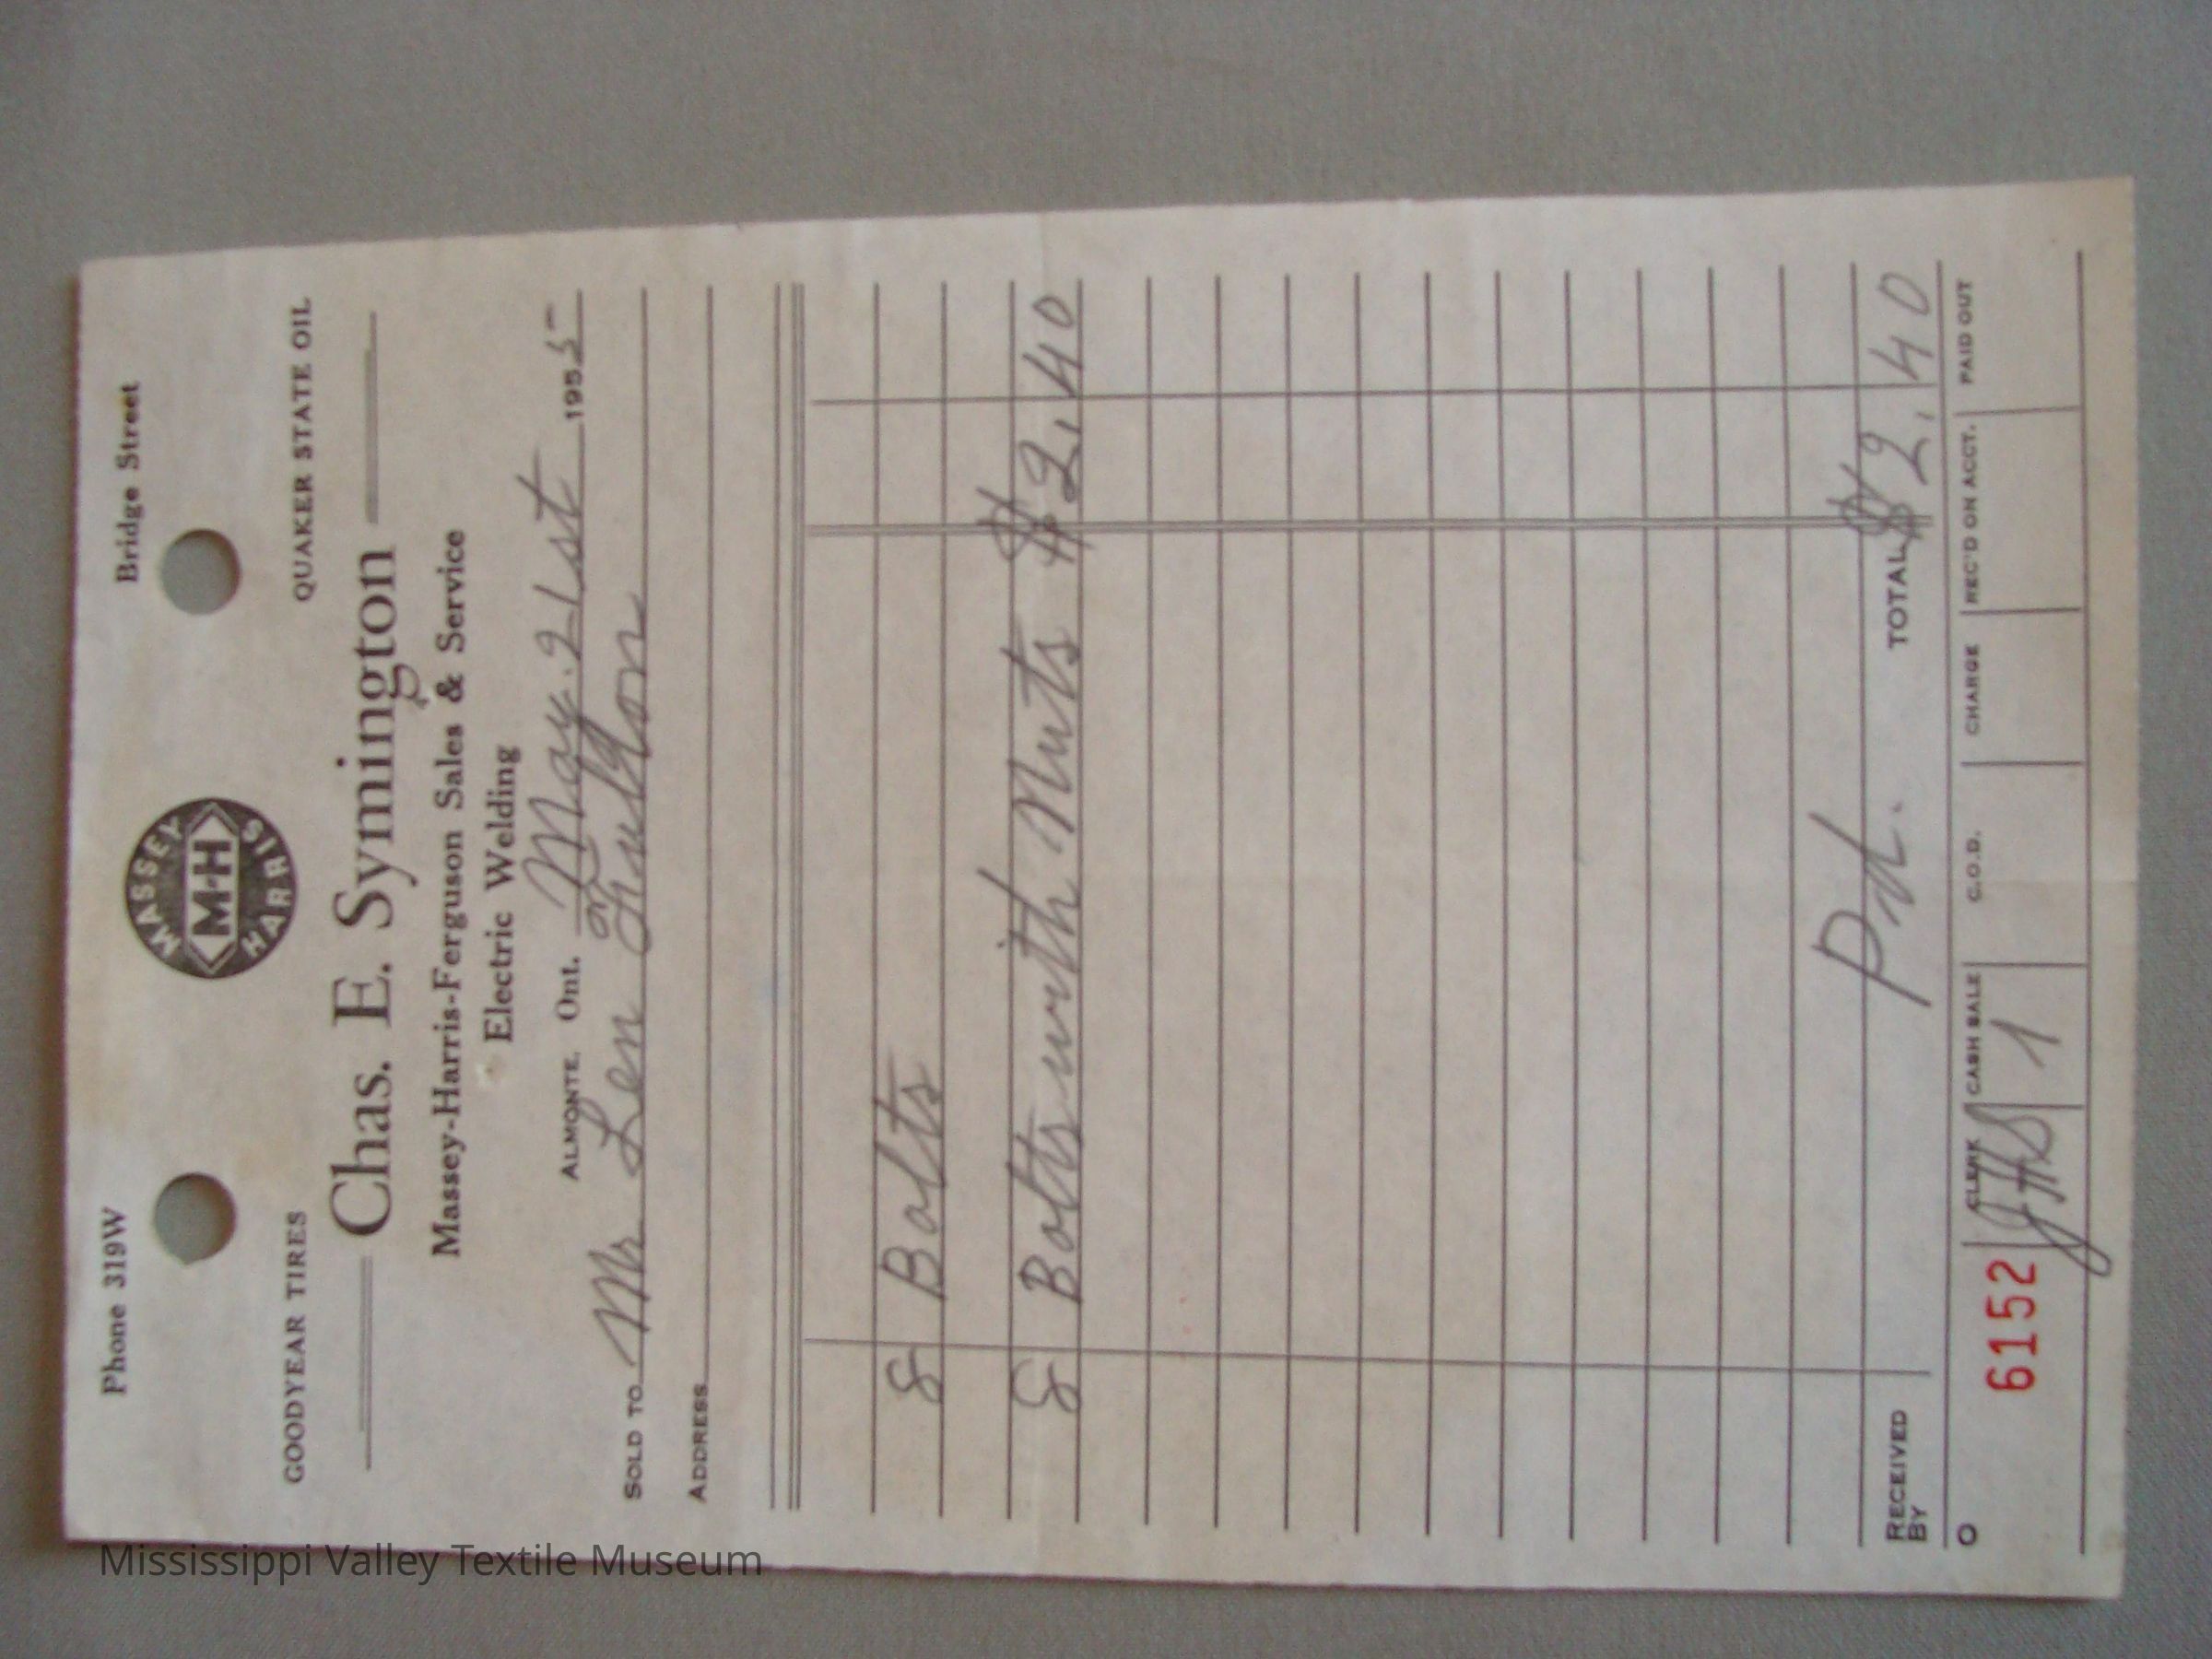 Phone 319W Bridge Street
MASSEY
M-H
HARRIS
GOODYEAR TIRES QUAKER STATE OIL
Chas. E. Symington
Massey-Harris-Ferguson Sales & Service
Electric Welding
ALMONTE, Ont. May. 21st 1955
SOLD TO Mr. Len Fulton
ADDRESS
8 Bolts
8 Bolts with Nuts $2.40
Pd.
RECEIVED BY TOTAL $2.40
CLERK CASH SALE C.O.D. CHARGE REC'D ON ACCT. PAID OUT
6152 1
Mississippi Valley Textile Museum